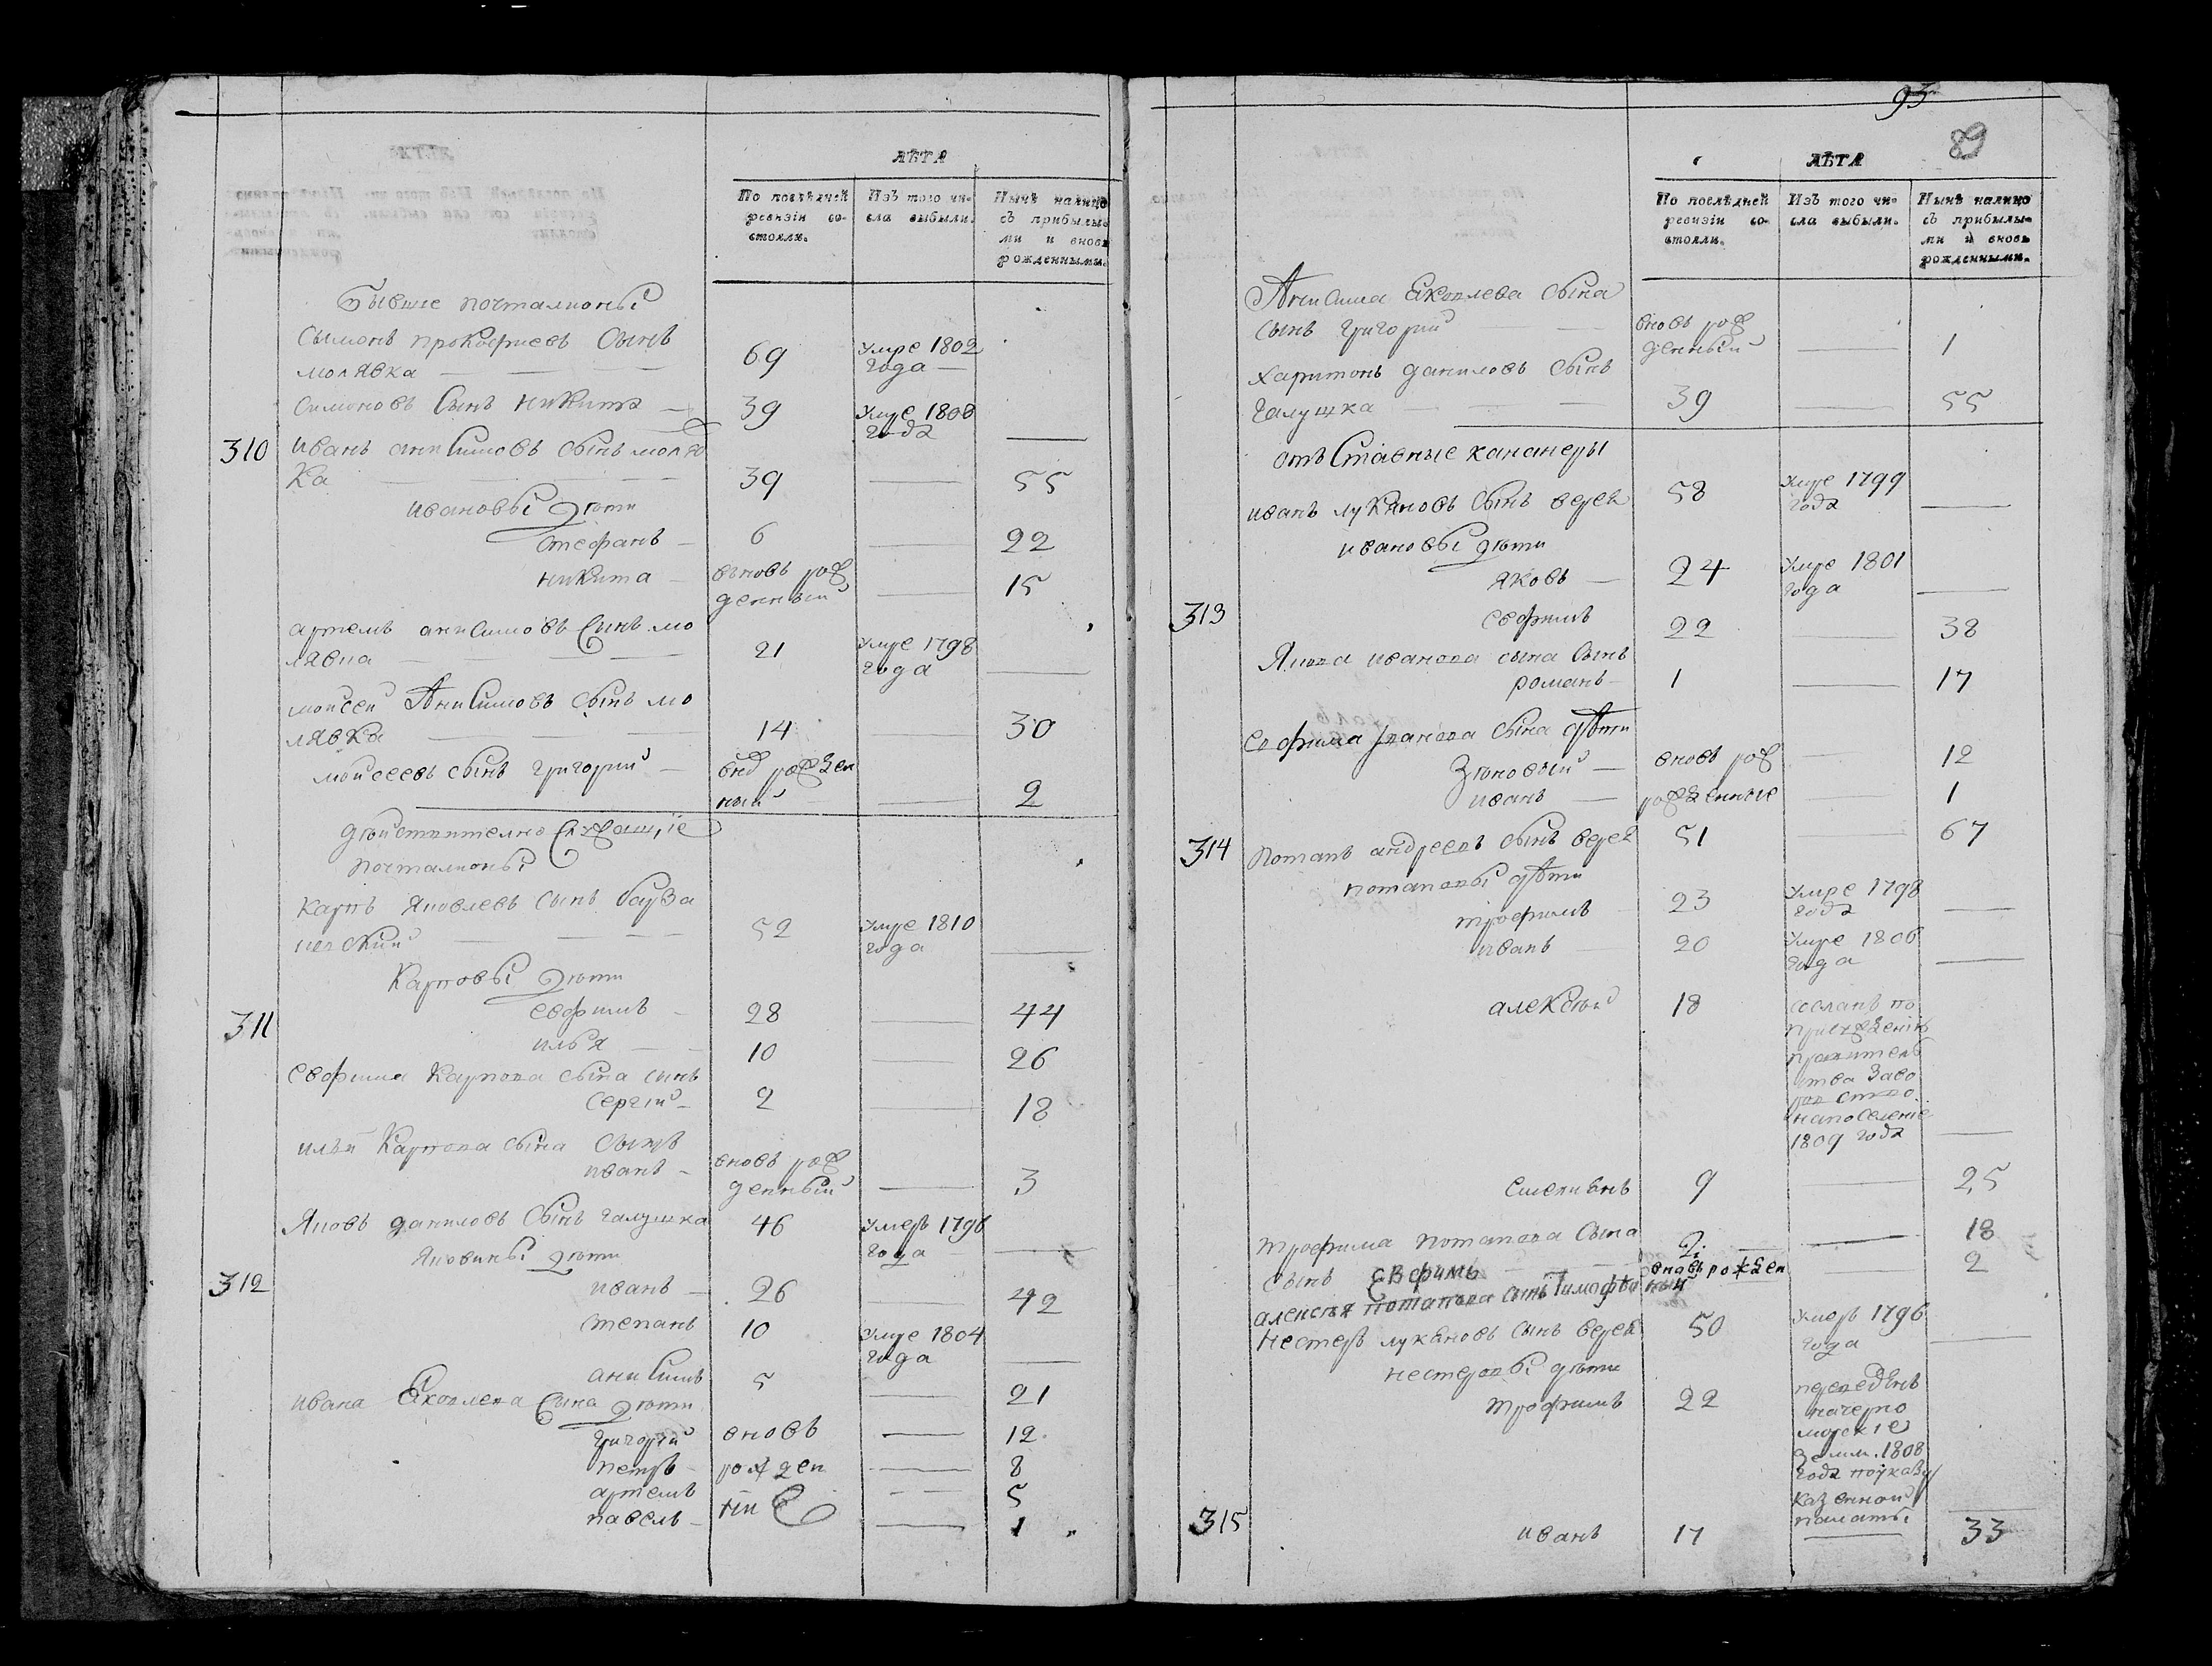 ЛѢТА
По послѣдней ревизіи со-стояли.
Изъ того чи-сла выбыли.
Нынѣ налицо съ прибылы-ми и вновь рожденными.
бывшие почталионы
Сымонъ прокофиевъ Сынъ
молявка 69 умре 1802 года
Симоновъ Сынъ никита 39 умре 1808 года
310 иванъ анисимовъ сынъ моляв
ка 39 55
ивановы дѣти
стефанъ 6 22
никита вьновь рож
денный 15
артемъ анисимовъ Сынъ мо
лявка 21 умре 1798 года
моисей Анисимовъ сынъ мо
лявка 14 30
моисеевъ сынъ григорий
рожден
ный 2
дѣйствително Служащіе
почталионы
Карпъ Яковлевъ сынъ
52 умре 1810 года
Карповы дѣти
311 евфимъ 28 44
илья 10 26
евфима Карпова сына сынъ
сергій 2 18
ильи Карпова сына Сынъ
иванъ вновь рож
денный 3
Яковъ даниловъ Сынъ галушка 46 умеръ 1796 года
Яковины дѣти
312 иванъ 26 42
степанъ 10 умре 1804 года
анисимъ 5 21
ивана Яковлева Сына дѣти
григорій вновь 12
петръ рожден 8
артемъ ніи 5
павелъ 1
93
89
ЛѢТА
По послѣдней ревизіи со-стояли.
Изъ того чи-сла выбыли.
Нынѣ налицо съ прибылы-ми и вновь рожденными.
Анисима Яковлева Сына
сынъ григорий вновь рож
денный 1
харитонъ даниловъ сынъ
галушка 39 55
отъСтавные канонеры
иванъ лукяновъ Сынъ верей 58 умре 1799 года
ивановы дѣти
яковъ 24 умре 1801 года
313 евфимъ 22 38
Якова иванова сына Сынъ
романъ 1 17
евфима иванова сына дѣти
Зѣновый вновь рож 12
иванъ рожденные 1
314 потапъ андреевъ сынъ верей 51 67
потаповы дѣти
трофимъ 23 умре 1798 года
иванъ 20 умре 1806 года
алексѣй 18 сосланъ по
правитель
ства За во
ров ство
на поселение
1809 года
емелиянъ 9 25
трофима потапова Сына 2 18
сынъ евфимъ вновь рожден 2
алексѣя потапова сынъ Тимофѣй ный
нестеръ лукяновъ сынъ верей 50 умеръ 1796 года
нестеровы дѣти
трофимъ 22 переведенъ
на черно
морские
земли. 1808
года по указу
казенной
палаты
315 иванъ 17 33